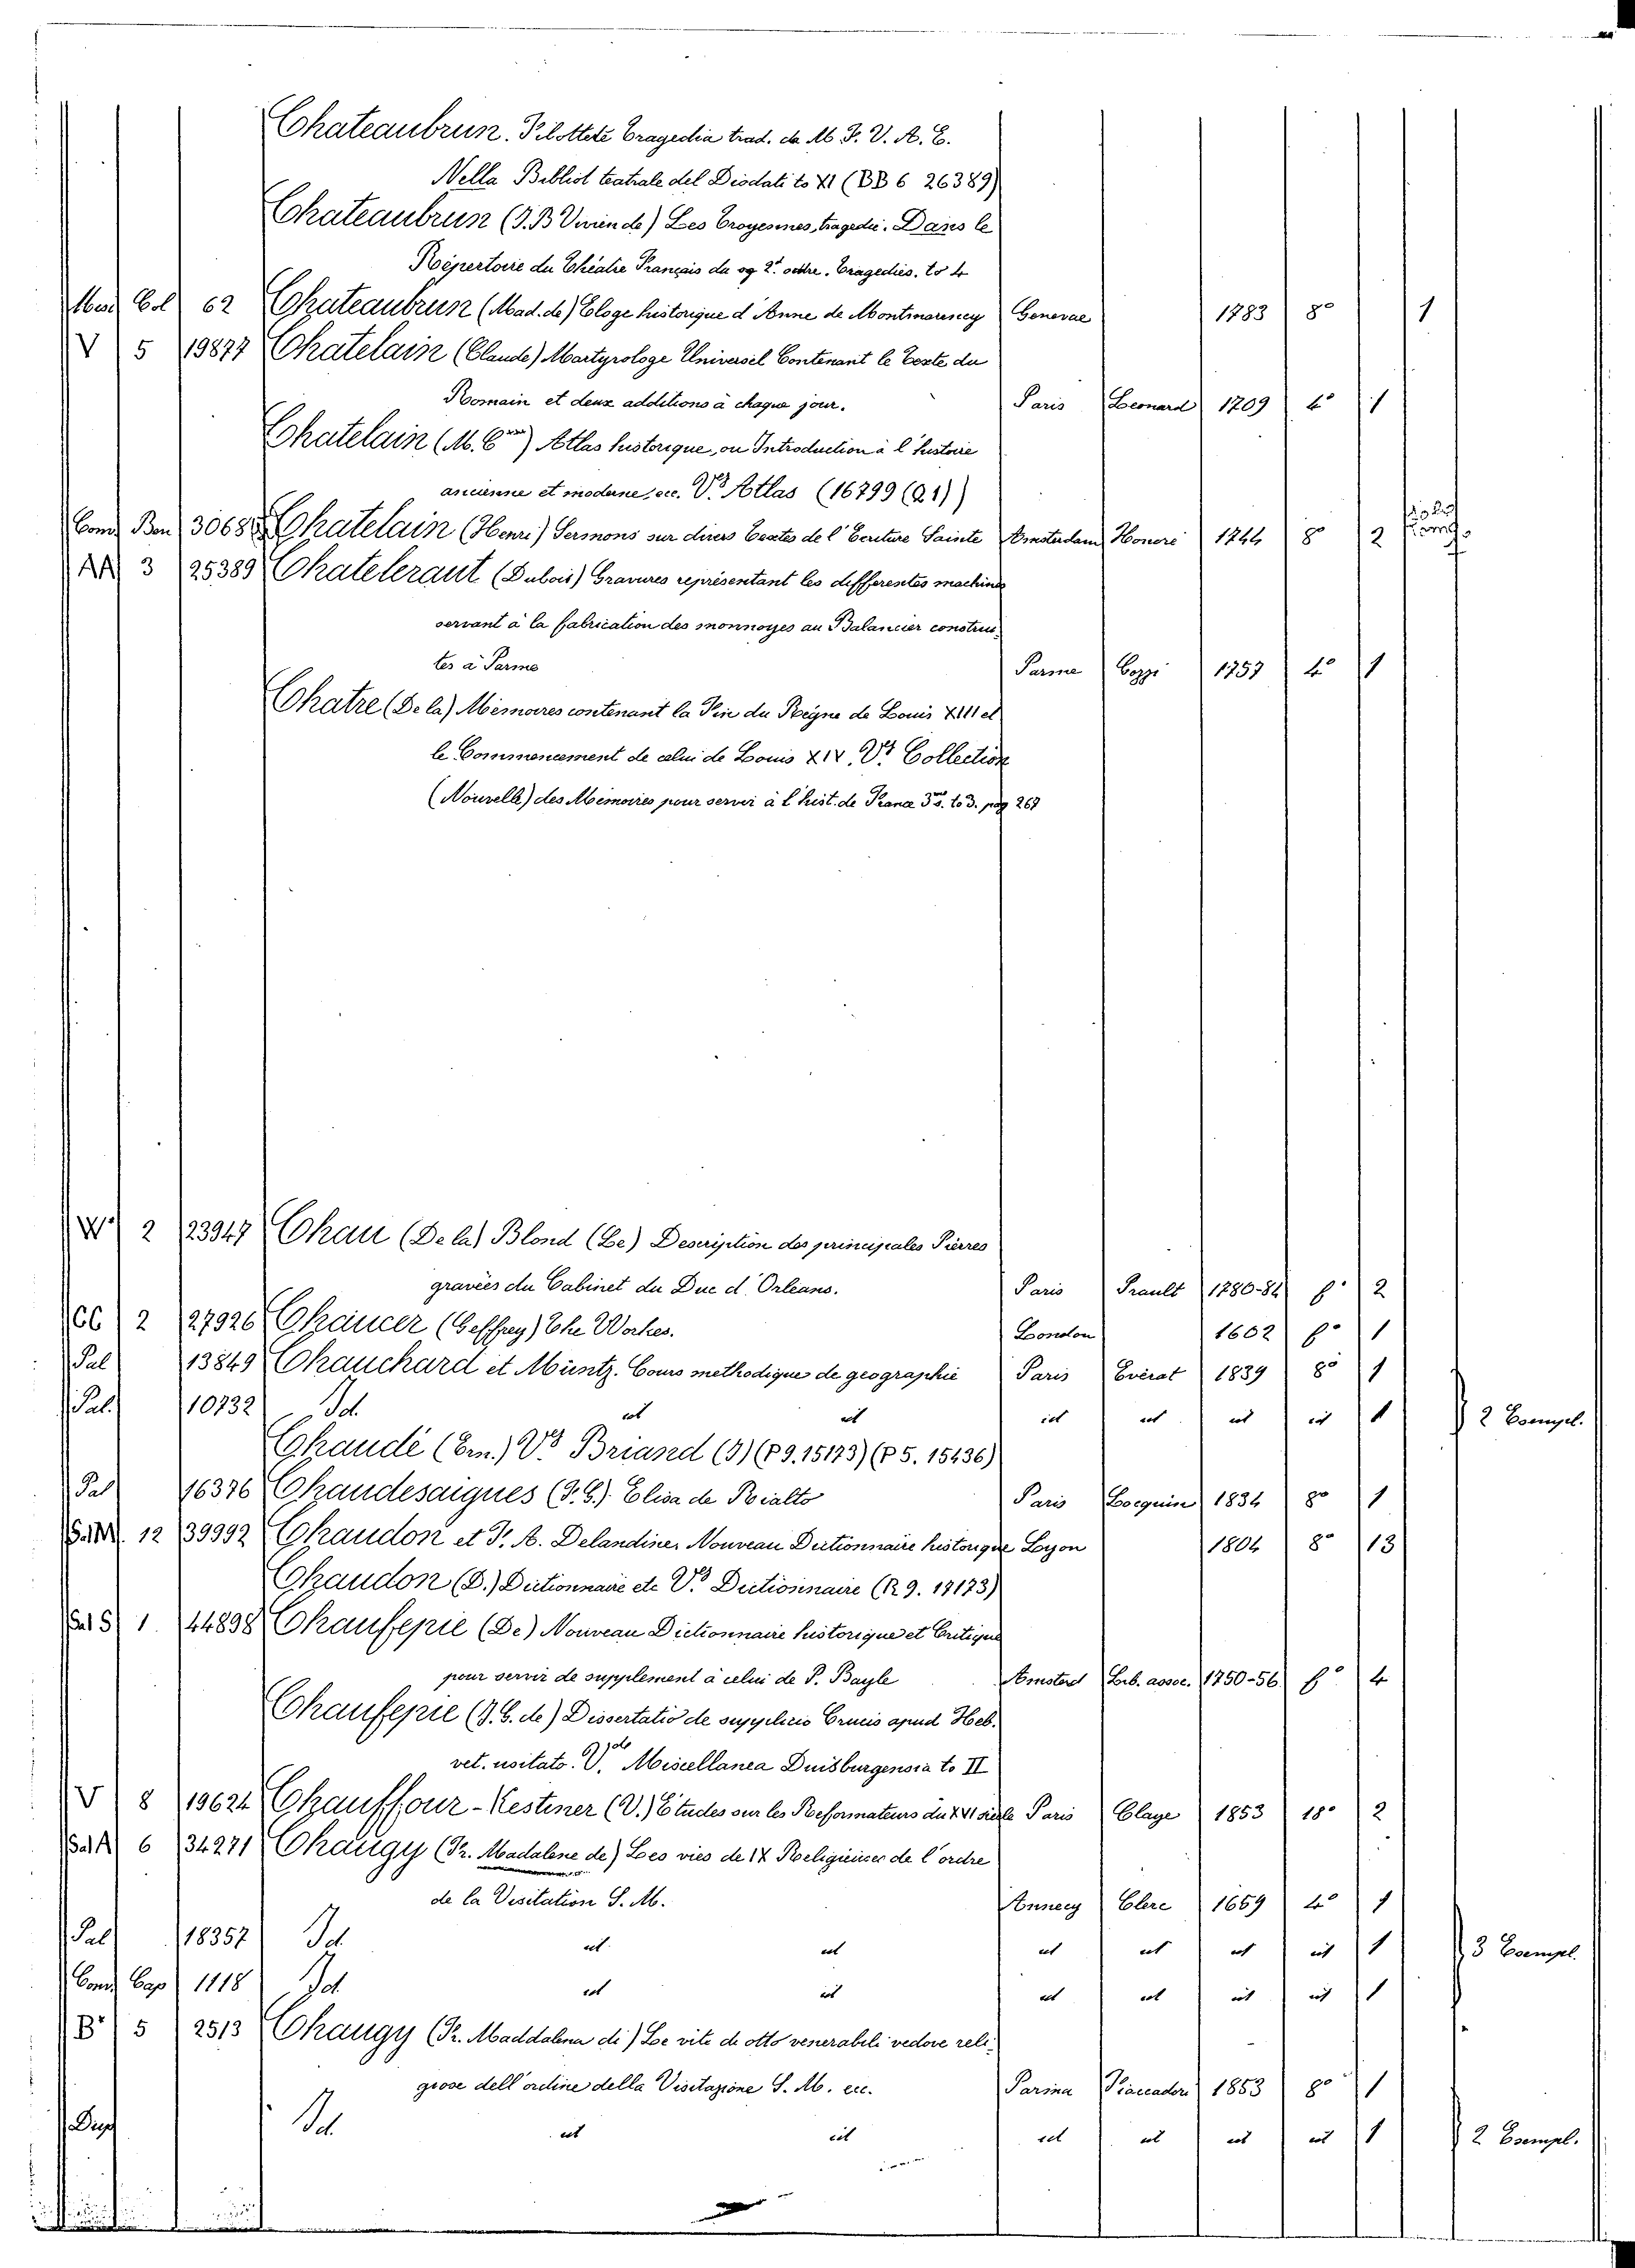 Chateaubrun. Filottete Tragedia trad. da M. F. V. A. C.
Nella Bibliot teatrale del Diodati to XI (BB 6 26389)
Chateaubrun (J.B Vivien de) Les Troyennes, tragedie. Dans le
Répertoire du Théatre Français da og 2.e ordre. Tragedies. to 4
Col 62 Chateaubrun (Mad. de) Eloge historique d'Anne de Montmorency Genevae 1783 8º 1
V 5 19877 Chatelain (Claude) Martyrologe Universel Contenant le Texte du
Romain et deux additions à chaque jour. Paris Leonard 1709 4º 1
Chatelain (M. C.) Atlas historique, ou Introduction à l'histoire
ancienne et moderne, ecc. V.º Atlas (16799 (Q1))
Conv Ben 3068 Chatelain (Henri) Sermons sur divers Textes de l'Ecriture Sainte Amsterdam Honoré 1744 8º 2
AA 3 25389 Chateleraut (Dubois) Gravures représentant les differentes machines
servant à la fabrication des monnoyes au Balancier construi-
tes à Parme Parme Gozzi 1757 4º 1
Chatre (De la) Mémoires contenant la Fin du Regne de Louis XIII et
le Commencement de celui de Louis XIV. V.º Collection
(Nouvelle) des Mémoires pour servir à l'hist. de France 3 s. to 3. pag 267
W' 2 23947 Chau (De la) Blond (Le) Description des principales Pierres
gravées du Cabinet du Duc d'Orleans. Paris Prault 1780-84 fº 2
CC 2 27926 Chaucer (Geffrey) The Workes. London 1602 fº 1
Pal 13849 Chauchard et Müntz. Cours methodique de geographie Paris Everat 1839 8º 1
Pal. 10732 Id. ut ut ut ut ut ut 1 2 Esempl.
Chaudé (Em.) V.º Briand (J) (P9. 15173) (P 5. 15436)
Pal 16376 Chaudesaigues (J. G.) Elisa de Rialto Paris Locquin 1834 8º 1
Sal M. 12 39992 Chaudon et F. A. Delandine. Nouveau Dictionnaire historique Lyon 1804 8º 13
Chaudon (D.) Dictionnaire etc V.º Dictionnaire (R 9. 17173)
Sal S 1 44898 Chaufepie (De) Nouveau Dictionnaire historique et Critique
pour servir de supplement à celui de P. Bayle Amsterd Lib. assoc. 1750-56 fº 4
Chaufepie (J. G. de) Dissertatio de supplicio Crucis apud Heb.
vet. usitato. V.de Miscellanea Duisburgensia to II
V 8 19624 Chauffour-Kestner (V.) Etudes sur les Reformateurs du XVI siecle Paris Claye 1853 18º 2
Sal A 6 34271 Chaugy (Fr. Madalene de) Les vies de IX Religieuses de l'ordre
de la Visitation S. M. Annecy Clerc 1659 4º 1
Pal 18357 Id ut ut ut ut ut ut 1 3 Esempl.
Conv Cap 1118 Id ut ut ut ut ut ut 1
B' 5 2513 Chaugy (Fr. Maddalena di) Le vite di otto venerabili vedove reli-
giose dell'ordine della Visitazione S. M. ecc. Parma Fiaccadori 1853 8º 1
Dup Id. ut ut ut ut ut ut 1 2 Esempl.